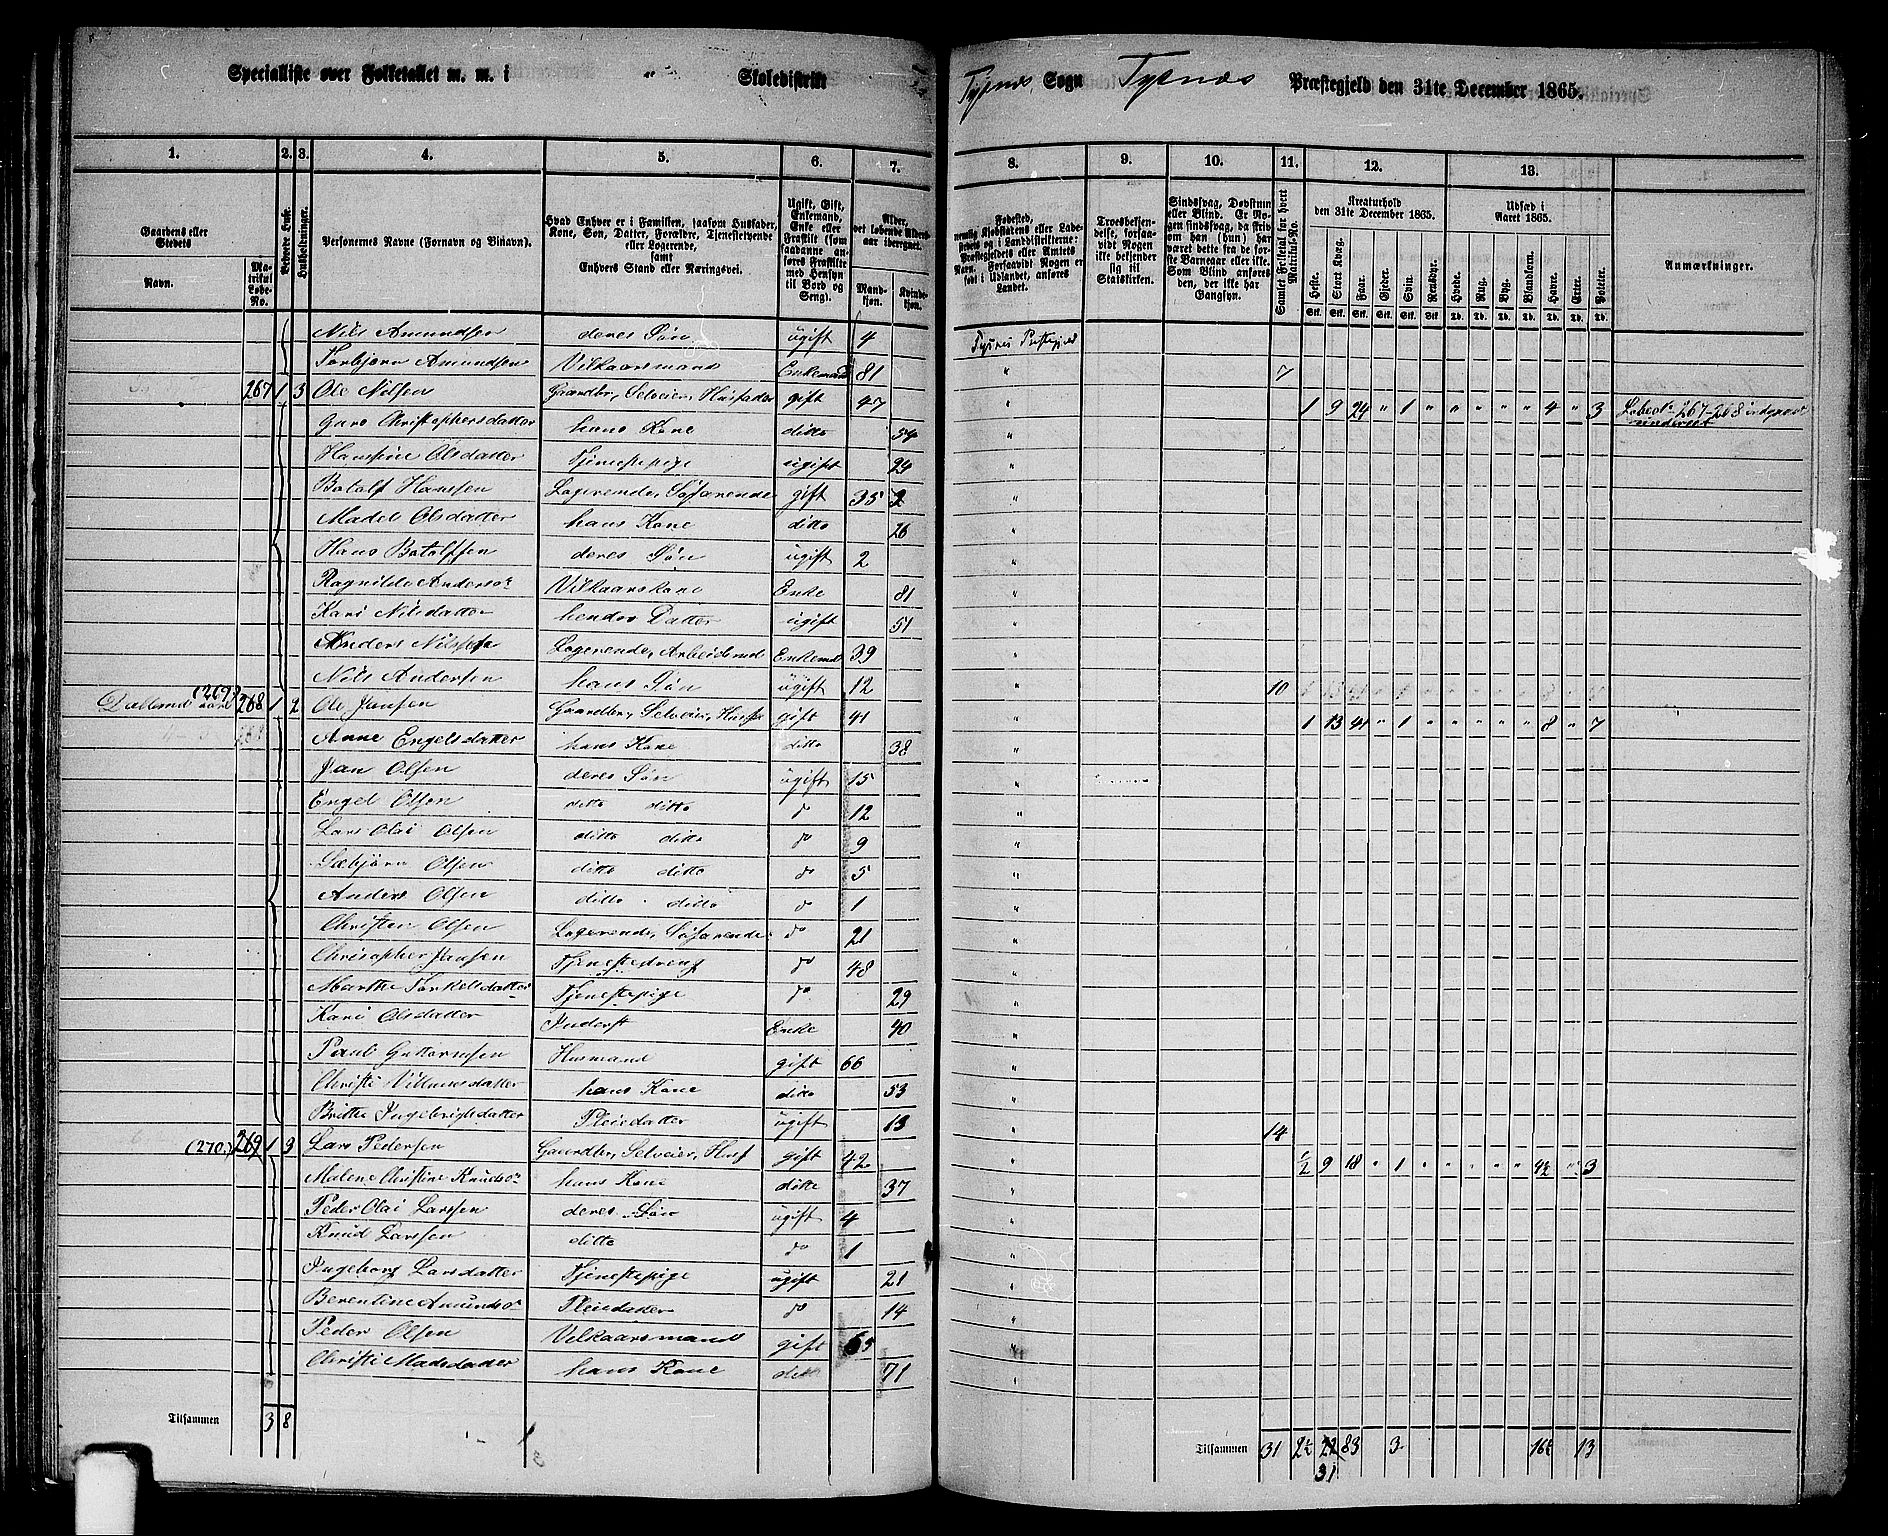 Specialliste over Folketallet m. m. i " Skoledistrikt Tysnes Sogn Tysnæs Præstegjeld den 31te December 1865.
1. 2. 3. 4. 5. 6. 7. 8. 9. 10. 11. 12. 13.
Gaardens eller Stedets Navn. Matrikul Løbe-No. Beboede Huse. Husholdninger. Personernes Navne (Fornavn og Binavn). Hvad Enhver er i Familien, saasom Husfader, Kone, Søn, Datter, Forældre, Tjenestetyende eller Logerende, samt Enhvers Stand eller Næringsvei. Ugift, Gift, Enkemand, Enke eller Fraskilt (som saadanne anføres Fraskilte med Hensyn til Bord og Seng). Alder, det løbende Aldersaar iberegnet. Mandkjøn. Kvindekjøn.
Fødested, Trosbekjendelse, forsaavidt Nogen ikke bekjender sig til Statskirken. Sindssvag, Døvstum eller Blind. Samlet Folketal for hvert Matrikul-No. Kreaturhold den 31te December 1865. Udsæd i Aaret 1865. Anmærkninger.
Heste. Stort Kvæg. Faar. Gjeder. Svin. Rensdyr. Hvede. Rug. Byg. Blandkorn. Havre. Erter. Poteter.
Nils Amundsen deres Søn ugift 4 Tysnes Prestegjeld
Torbjørn Amundsen Vilkaarsmand Enkemand 81 " 7
267 1 3 Ole Nilsen Gaardbr, Selveier, Husfader gift 47 " 1 9 24 " 1 " " " " " 4 " 3 Løbeno 267-268
Guro Christophersdatter hans Kone ditto 54 "
Hansine Olsdatter Tjenestepige ugift 24 "
Botolf Hansen Logerende, Søfarende gift 35 "
Madel Olsdatter hans Kone ditto 26 "
Hans Botolfsen deres Søn ugift 2 "
Ragnilde Andersdr Vilkaarskone Enke 81 "
Kari Nilsdatter hendes Datter ugift 51 "
Anders Nilssen Logerende, Arbeidsmd Enkemd 39 "
Nils Andersen hans Søn ugift 12 " 10
(269) 268 1 2 Ole Jansen Gaardbr, Selveier, Husfa gift 41 " 1 13 41 " 1 " " " " " 8 " 7
Anne Engelsdatter hans Kone ditto 38 "
Jan Olsen deres Søn ugift 15 "
Engel Olsen ditto ditto do 12 "
Lars Olai Olsen ditto ditto do 9 "
Sæbjørn Olsen ditto ditto do 5 "
Anders Olsen ditto ditto do 1 "
Christen Olsen Logerende, Søfarende do 21 "
Chrisopher Jansen Tjenestedreng do 48 "
Marthe Torkelsdatter Tjenestepige do 29 "
Kari Olsdatter Inderst Enke 40 "
Paul Guttormsen Husmand gift 66 "
Christi Villumsdatter hans Kone ditto 53 "
Britte Ingebrigtsdatter Pleiedatter ugift 13 " 14
(270.) 269 1 3 Lars Pedersen Gaardbr, Selveier, Husf gift 42 " 1/2 9 18 " 1 " " " " " 4½ " 3
Malene Christine Knudsdr hans Kone ditto 37 "
Peder Olai Larssen deres Søn ugift 4 "
Knud Larssen ditto do 1 "
Ingeborg Larsdatter Tjenestepige ugift 21 "
Berentine Amundsdr Pleiedatter do 14 "
Peder Olsen Vilkaarsmand gift 65 "
Christi Madsdatter hans Kone ditto 71 "
Tilsammen 3 8 Tilsammen 31 2½ 83 3 16½ 13
31